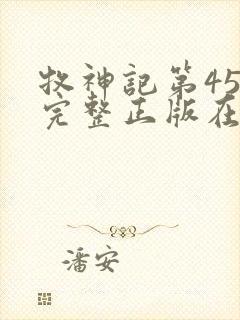 牧神記第45
完整正版在
潘安